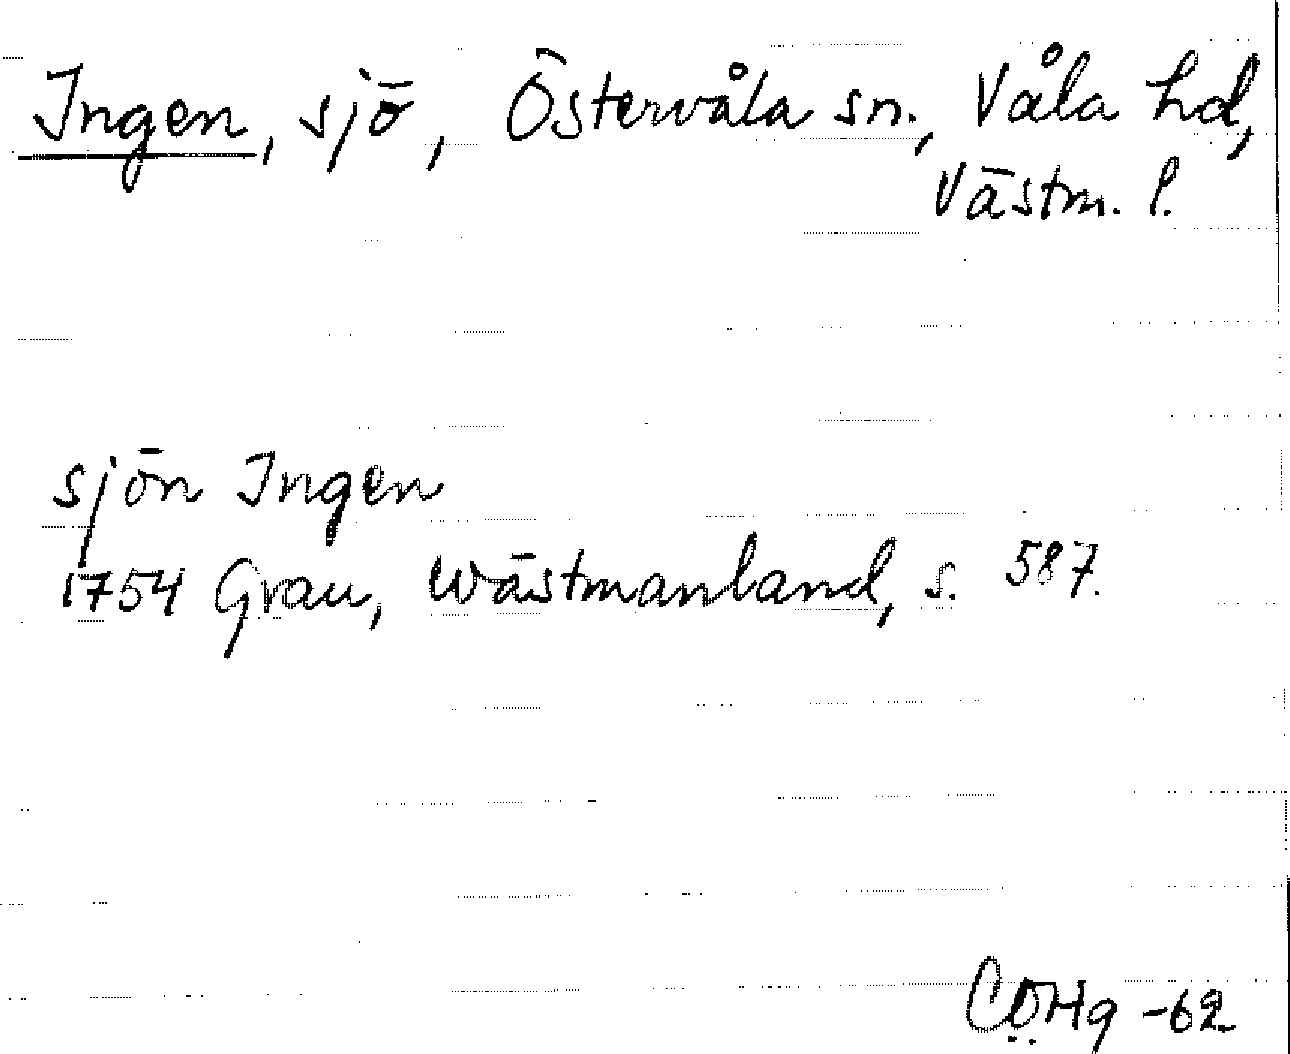 Ingen, sjö, Östervåla sn., Våla hd,
Västm. l.
sjön Ingen
1754 Grau, Wästmanland, s. 587.
CÖHg -62